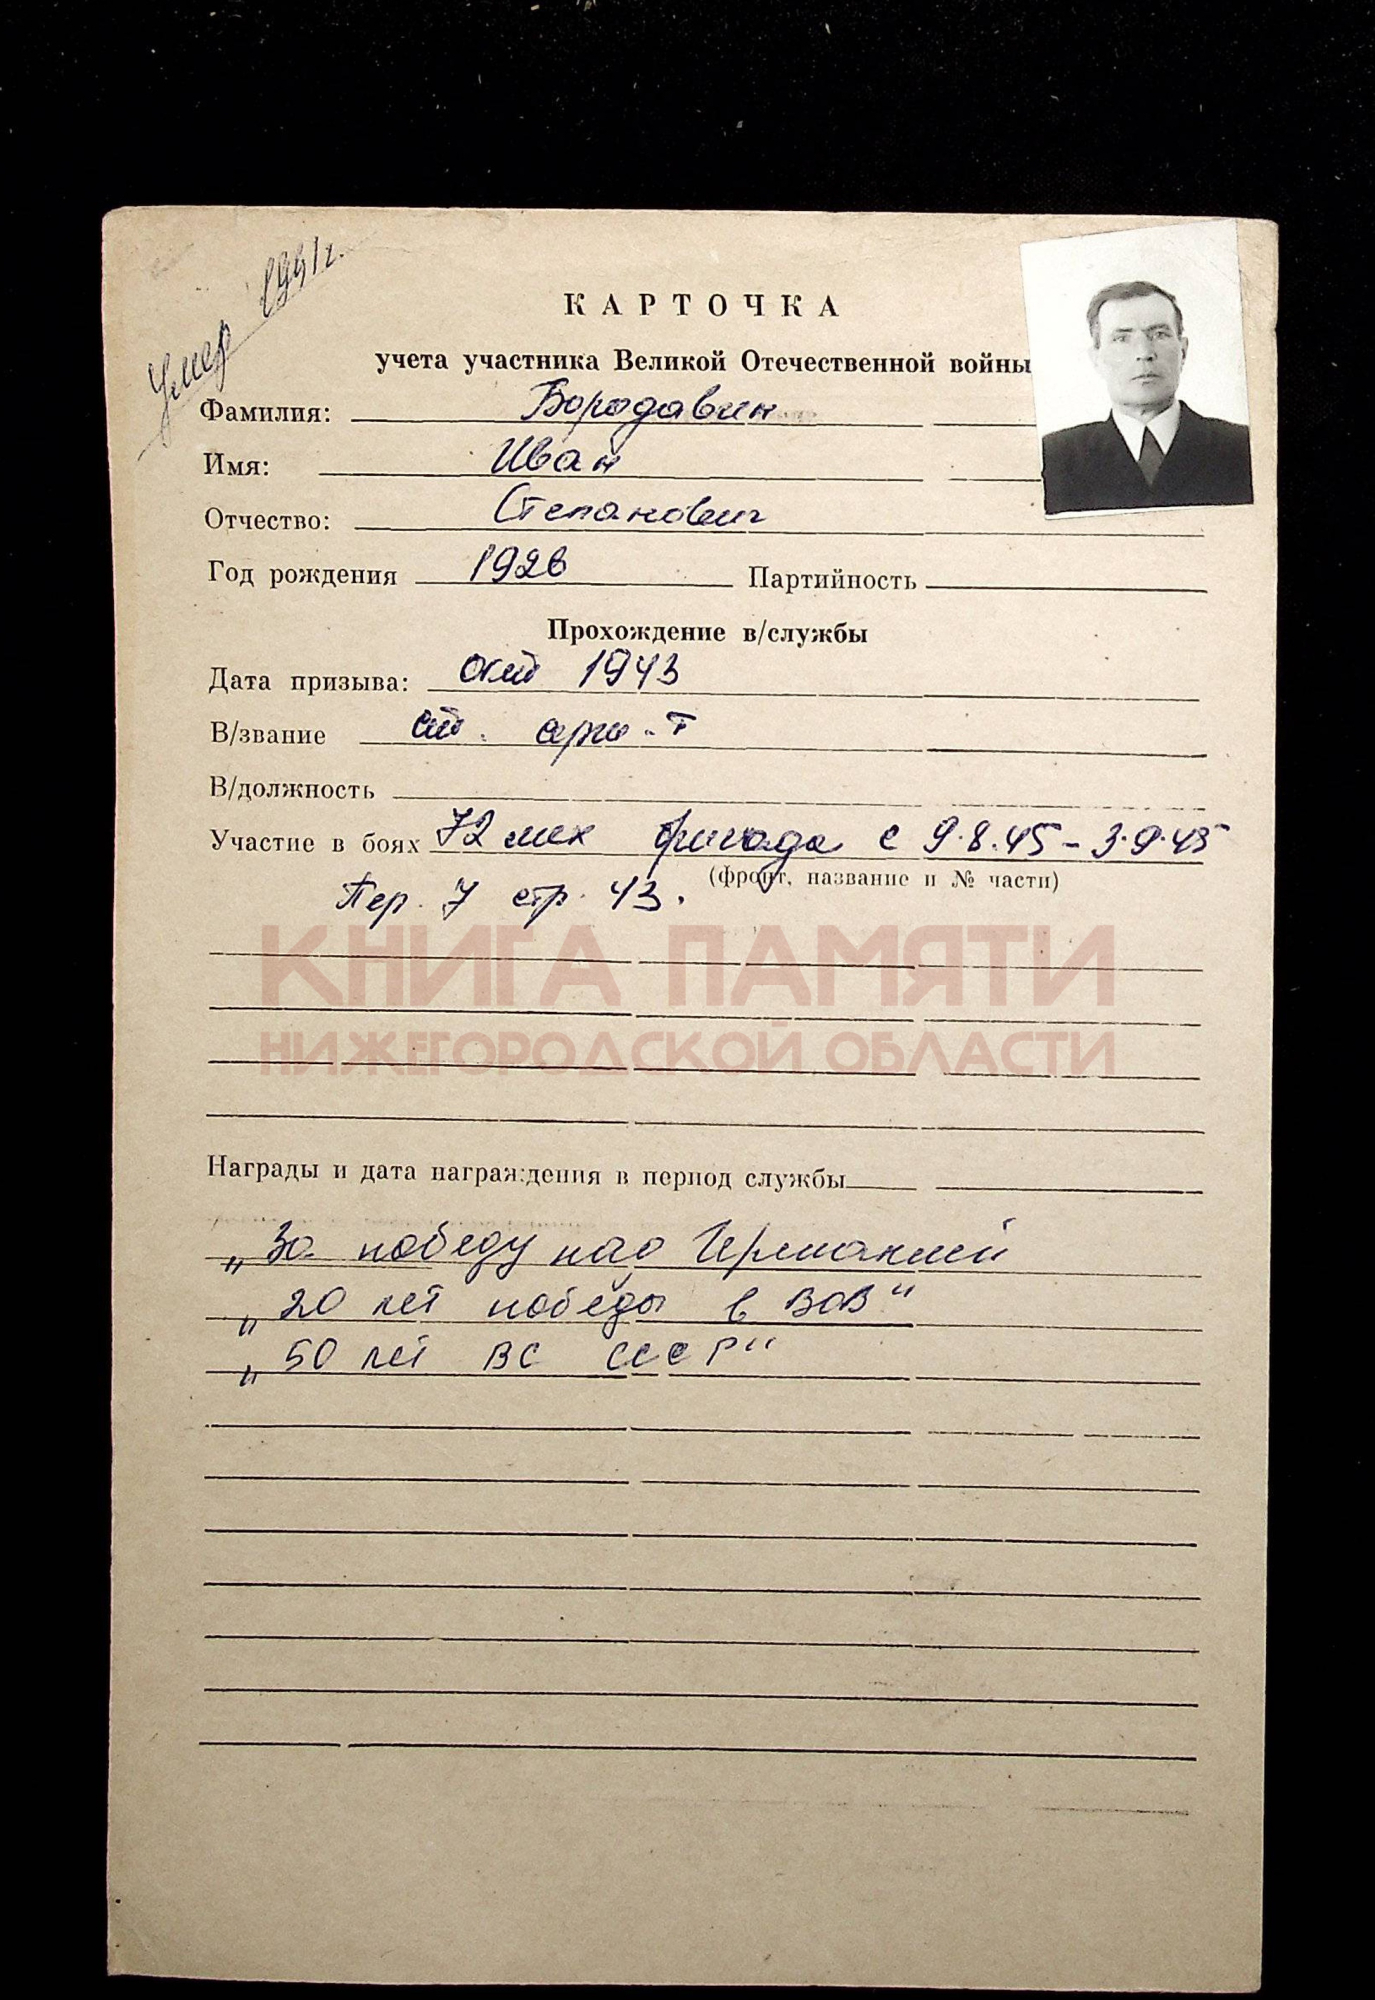 Умер 1991г.
КАРТОЧКА
учета участника Великой Отечественной войны
Фамилия: Бородавин
Имя: Иван
Отчество: Степанович
Год рождения 1926 Партийность
Прохождение в/службы
Дата призыва: окт 1943
В/звание ст. серж-т
В/должность
Участие в боях 72 мех бригада с 9.8.45 - 3.9.45
(фронт, название и № части)
Пер. 7 стр. 43.
КНИГА ПАМЯТИ
НИЖЕГОРОДСКОЙ ОБЛАСТИ
Награды и дата награждения в период службы
„За победу над Германией
„20 лет победы в ВОВ"
„50 лет ВС СССР"